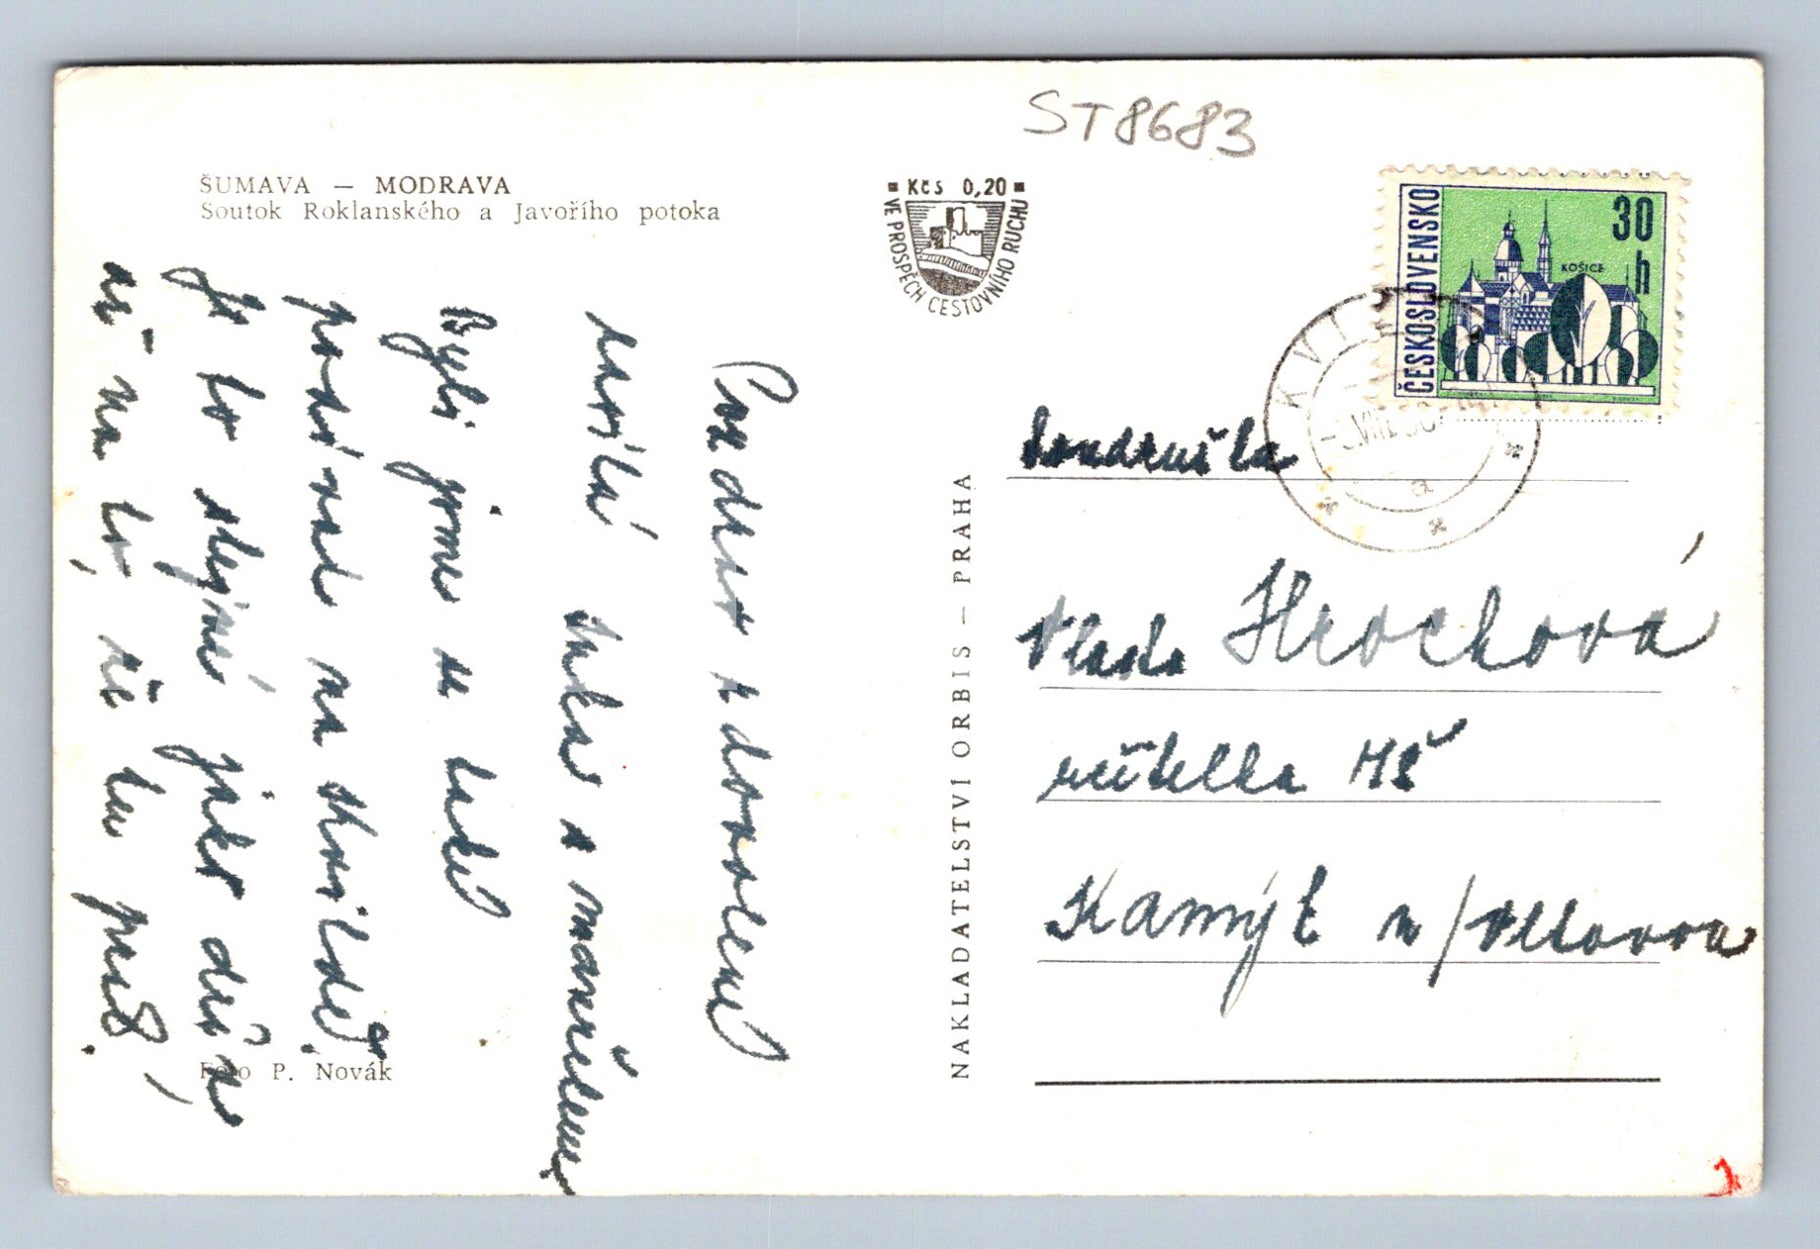 ST8683
ŠUMAVA — MODRAVA
Soutok Roklanského a Javořího potoka
Kčs 0,20
VE PROSPĚCH CESTOVNÍHO RUCHU
ČESKOSLOVENSKO
30
h
KOŠICE
KVIL
Pozdrav z dovolené
zasílá s manželem
Byli jsme se také
podívat na Kvildě.
Je to stejné jako dřív
až na to, že tu prší.
Foto P. Novák
NAKLADATELSTVÍ ORBIS — PRAHA
Soudružka
Vlasta Hrochová
učitelka MŠ
Kamýk n/Vltavou